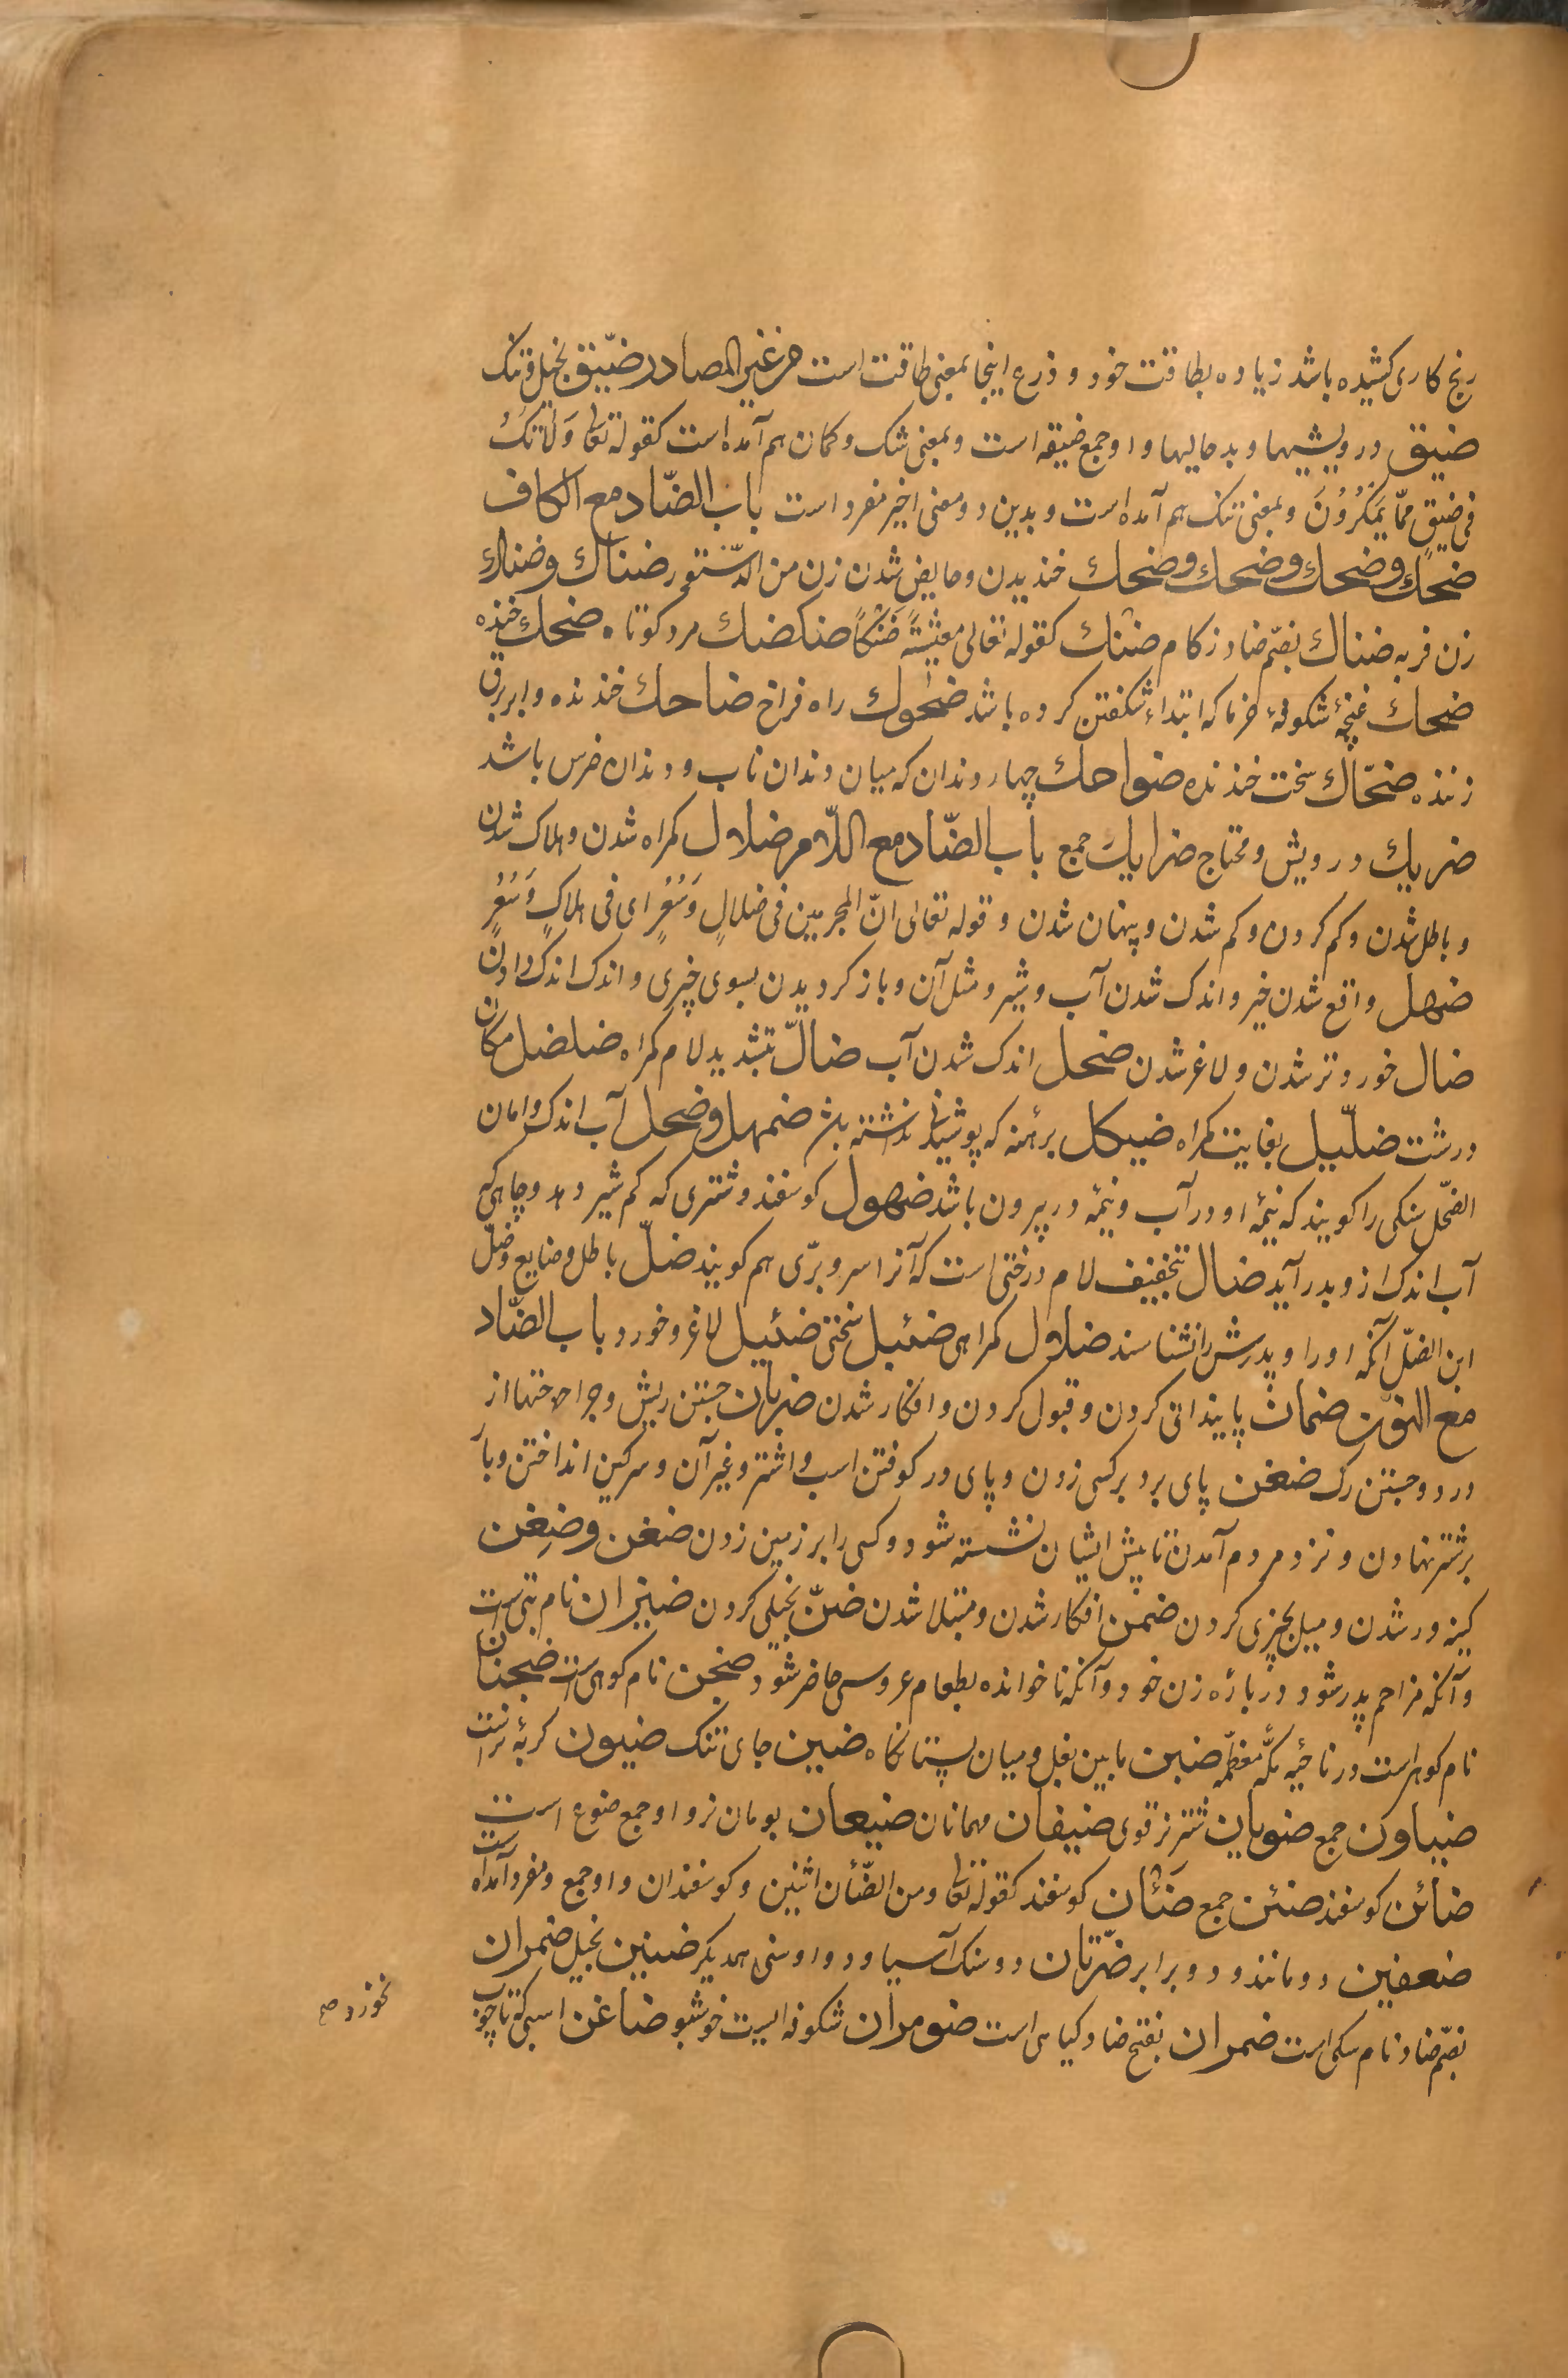 رنج کاری کشیده باشد زیاده بطاقت خود و ذرع اینجا بمعنی طاقت است من غیر المصادر ضیّق بخیل و تنک
ضیق درویشیها و بدحالیها و او جمع ضیقه است و بمعنی شک و کمان هم آمده است کقوله تعا وَلَا تَکُ
فی ضیقٍ ممّا یَمکُرُونَ و بمعنی تنک هم آمده است و بدین دو معنی اخیر مفرد است باب الضّاد مع الکاف
ضحك وضحك وضحك وضحك خندیدن و حایض شدن زن من الدّستور ضناك وضناك
زن فربه ضناك بضمّ ضاد زکام ضنك کقوله تعالی معیشةً ضَنْکًا ضنکضك مرد کوتاه ضحك خنده
ضحاك غنچهٔ شکوفهٔ خرما که ابتداء شکفتن کرده باشد ضحوك راه فراخ ضاحك خندنده و ابر برق
زننده ضحّاك سخت خندنده ضواحك چهار دندان که میان دندان ناب و دندان ضرس باشد
ضریك درویش و محتاج ضرایك جمع باب الضّاد مع اللّام ضلال کمراه شدن و هلاک شدن
و باطل شدن و کم کردن و کم شدن و پنهان شدن و قوله تعالی انّ المجرمین فی ضلالٍ وَسُعُرٍ ای فی هلاکٍ وَسُعُرٍ
ضهل واقع شدن خیر و اندک شدن آب و شیر و مثل آن و باز کردیدن بسوی چیزی و اندک اندک دادن
ضال خوردتر شدن و لاغر شدن ضحل اندک شدن آب ضالّ بتشدید لام کمراه ضلضل مکان
درشت ضلّیل بغایت کمراه ضیکل برهنه که پوشیدنی نداشته باشد ضمهل وضحل آب اندک و امان
الضّحل سنکی را کویند که نیمهٔ او در آب و نیمهٔ در بیرون باشد ضهول کوسفند و شتری که کم شیر دهد و چاهی که
آب اندک از و بدر آید ضال بتخفیف لام درختی است که آنرا سرو برّی هم کویند ضلّ باطل و ضایع وضلّ
ابن الضلّ آنکه او را و پدرش را نشناسند ضلال کمراهی ضئبل سختی ضئیل لاغر و خورد باب الضّاد
مع النّون ضمان پاینداتی کردن و قبول کردن و افکار شدن ضربان جستن ریش و جراحتها از
درد و جستن رک ضغن پای بر د بر کسی زدن و پای در کوفتن اسب و اشتر و غیر آن و سرکین انداختن و بار
بر شتر نهادن و نزد مردم آمدن تا پیش ایشان نشسته شود و کسی را بر زمین زدن ضغن وضِغن
کینه ور شدن و میل بچیزی کردن ضمن افکار شدن و مبتلا شدن ضنّ بخیلی کردن ضیزان نام بتی است
و آنکه مزاحم پدر شود در بارهٔ زن خود و آنکه ناخوانده بطعام عروسی حاضر شود ضجن نام کوهی است ضجنان
نام کوهی است در ناحیهٔ مکّه معظمّه ضبن مابین بغل و میان پستانکاه ضبین جای تنک ضیون کربهٔ نر است
ضیاون جمع ضوبان شتر نر قوی ضیفان مهمانان ضیعان بومان نر و او جمع ضوع است
ضائن کوسفند ضئن جمع ضَئان کوسفند کقوله تعا ومن الضّئان اثنین و کوسفندان و او جمع و مفرد آمده است
ضعفین دو مانند و دو برابر ضرّتان دو سنک آسیا و دو اوسنی همدیکر ضنین بخیل ضمران
بضمّ ضاد نام سکی است ضمران بفتح ضاد کیاهی است ضومران شکوفه ایست خوشبو ضاغن اسبی که تا چوب
نخورد صح